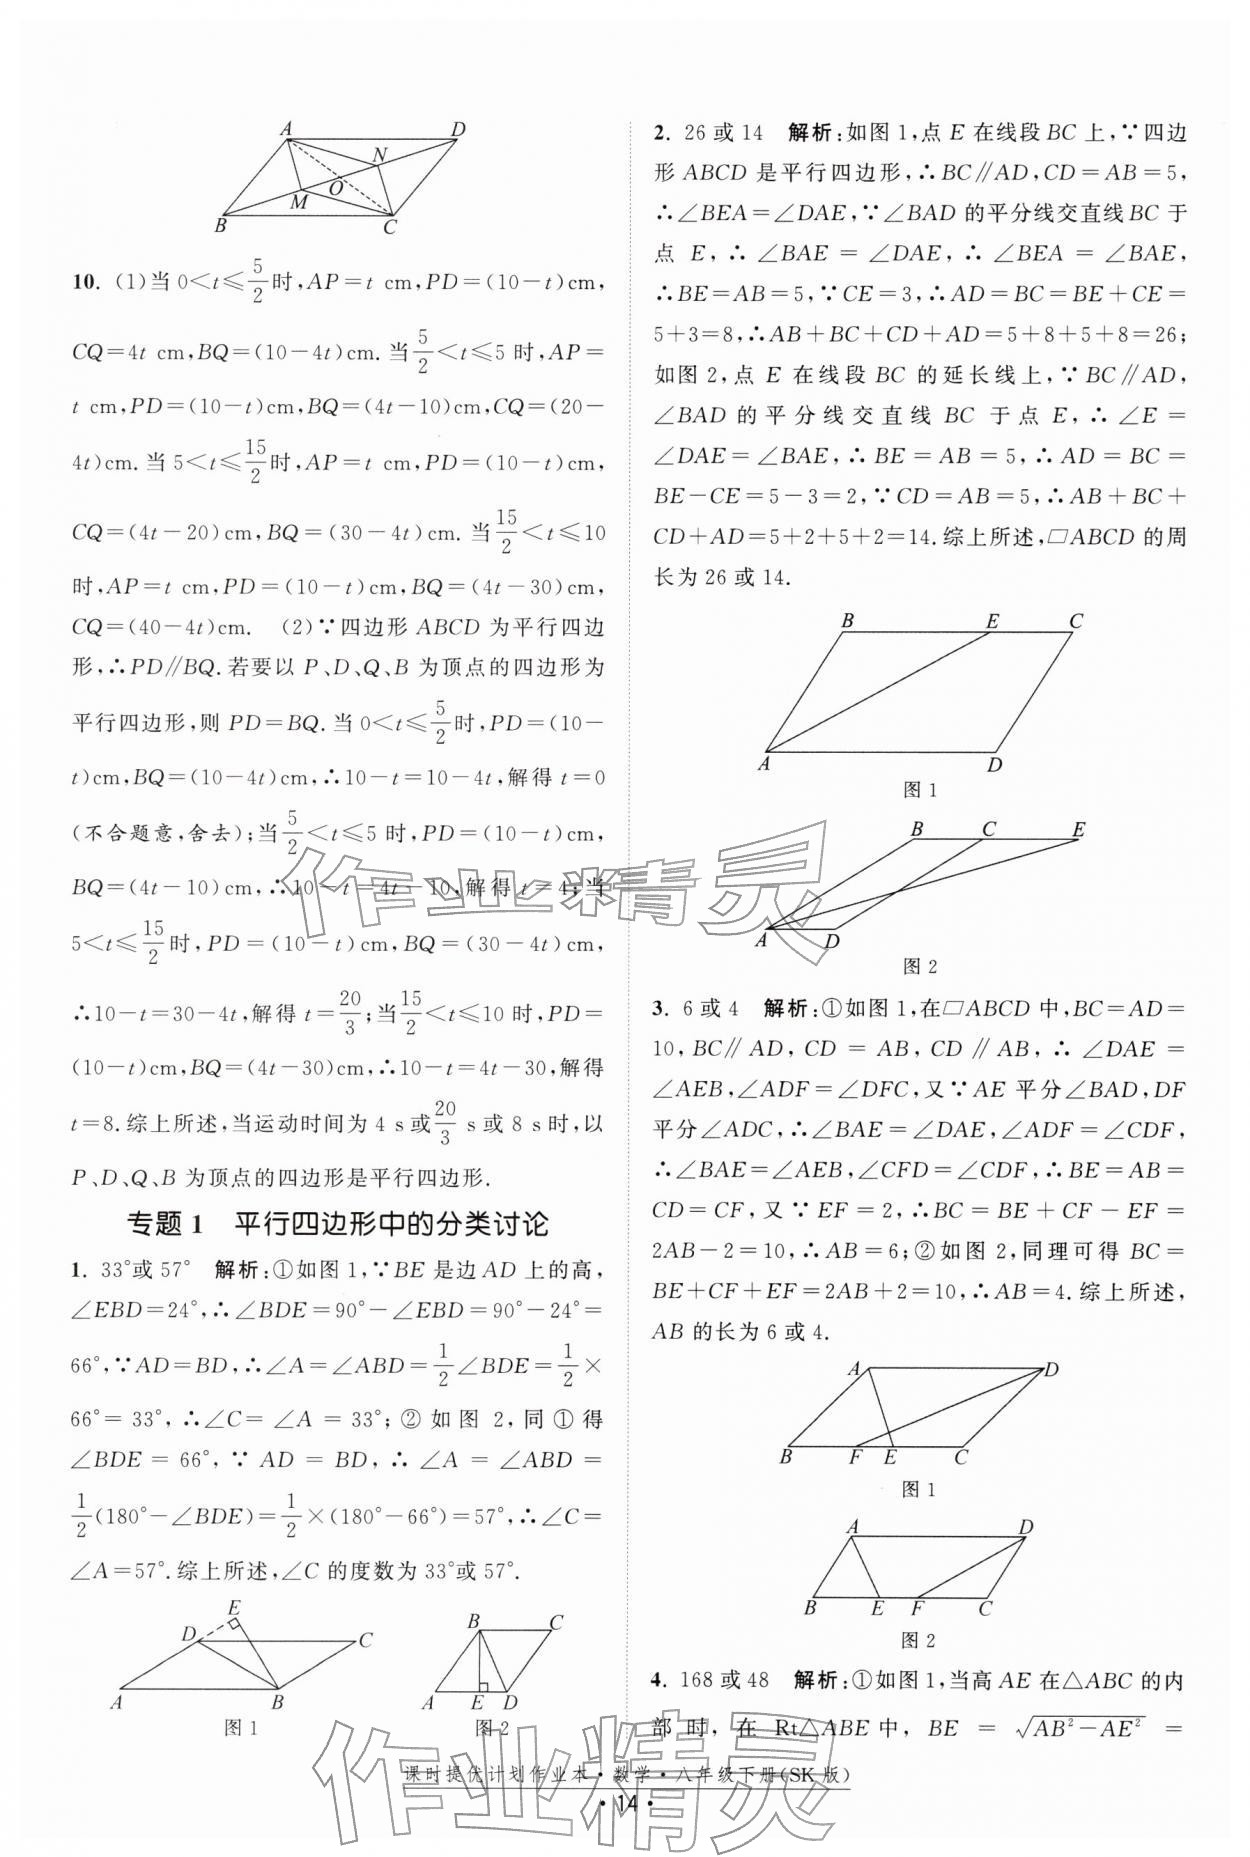 A D N O M B C
10. (1)当 0<t≤5/2时,AP=t cm,PD=(10-t)cm,
CQ=4t cm,BQ=(10-4t)cm. 当5/2<t≤5 时,AP=
t cm,PD=(10-t)cm,BQ=(4t-10)cm,CQ=(20-
4t)cm. 当 5<t≤15/2时,AP=t cm,PD=(10-t)cm,
CQ=(4t-20)cm,BQ=(30-4t)cm. 当15/2<t≤10
时,AP=t cm,PD=(10-t)cm,BQ=(4t-30)cm,
CQ=(40-4t)cm. (2)∵四边形 ABCD 为平行四边
形,∴PD∥BQ.若要以 P、D、Q、B 为顶点的四边形为
平行四边形,则 PD=BQ. 当 0<t≤5/2时,PD=(10-
t)cm,BQ=(10-4t)cm,∴10-t=10-4t,解得 t=0
(不合题意,舍去);当5/2<t≤5 时,PD=(10-t)cm,
BQ=(4t-10)cm,∴10-t=4t-10,解得 t=4;当
5<t≤15/2时,PD=(10-t)cm,BQ=(30-4t)cm,
∴10-t=30-4t,解得 t=20/3;当15/2<t≤10 时,PD=
(10-t)cm,BQ=(4t-30)cm,∴10-t=4t-30,解得
t=8.综上所述,当运动时间为 4 s或20/3 s或 8 s时,以
P、D、Q、B 为顶点的四边形是平行四边形.
专题 1 平行四边形中的分类讨论
1. 33°或 57° 解析:①如图 1,∵BE 是边 AD 上的高,
∠EBD=24°,∴∠BDE=90°-∠EBD=90°-24°=
66°,∵AD=BD,∴∠A=∠ABD=1/2∠BDE=1/2×
66°=33°,∴∠C=∠A=33°;②如图 2,同①得
∠BDE=66°,∵AD=BD,∴∠A=∠ABD=
1/2(180°-∠BDE)=1/2×(180°-66°)=57°,∴∠C=
∠A=57°.综上所述,∠C 的度数为 33°或 57°.
E D C A B
图 1
B C A E D
图 2
2. 26 或 14 解析:如图 1,点 E 在线段 BC 上,∵四边
形 ABCD 是平行四边形,∴BC∥AD,CD=AB=5,
∴∠BEA=∠DAE,∵∠BAD 的平分线交直线 BC 于
点 E,∴∠BAE=∠DAE,∴∠BEA=∠BAE,
∴BE=AB=5,∵CE=3,∴AD=BC=BE+CE=
5+3=8,∴AB+BC+CD+AD=5+8+5+8=26;
如图 2,点 E 在线段 BC 的延长线上,∵BC∥AD,
∠BAD 的平分线交直线 BC 于点 E,∴∠E=
∠DAE=∠BAE,∴BE=AB=5,∴AD=BC=
BE-CE=5-3=2,∵CD=AB=5,∴AB+BC+
CD+AD=5+2+5+2=14.综上所述,▱ABCD 的周
长为 26 或 14.
B E C A D
图 1
B C E A D
图 2
3. 6 或 4 解析:①如图 1,在▱ABCD 中,BC=AD=
10,BC∥AD,CD=AB,CD∥AB,∴∠DAE=
∠AEB,∠ADF=∠DFC,又∵AE 平分∠BAD,DF
平分∠ADC,∴∠BAE=∠DAE,∠ADF=∠CDF,
∴∠BAE=∠AEB,∠CFD=∠CDF,∴BE=AB=
CD=CF,又∵EF=2,∴BC=BE+CF-EF=
2AB-2=10,∴AB=6;②如图 2,同理可得 BC=
BE+CF+EF=2AB+2=10,∴AB=4.综上所述,
AB 的长为 6 或 4.
A D B F E C
图 1
A D B E F C
图 2
4. 168 或 48 解析:①如图 1,当高 AE 在△ABC 的内
部时,在 Rt△ABE 中,BE=√(AB²-AE²)=
课时提优计划作业本·数学·八年级下册(SK 版)
·14·
作业精灵
作业精灵